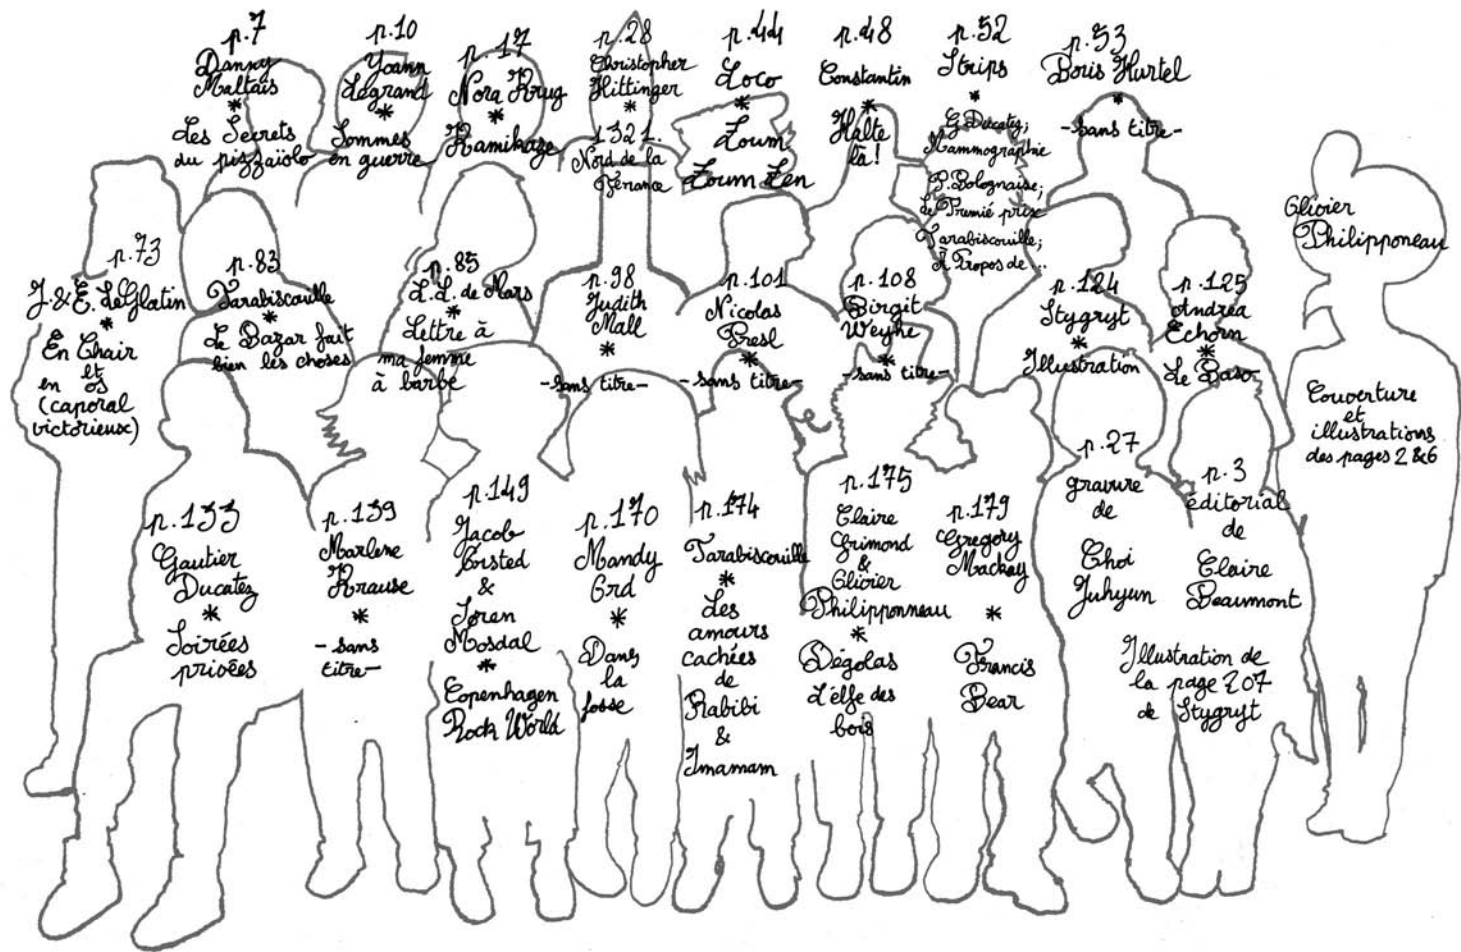 p.7
Danny
Maltais
*
Les Secrets
du pizzaïolo
p.10
Yoann
Legrand
*
Sommes
en guerre
p.17
Nora Krug
*
Kamikaze
p.28
Christopher
Hittinger
*
1321.
Nord de la
France
p.44
Loco
*
Zoum
Zoum Zen
p.48
Constantin
*
Halte
là!
p.52
Strips
*
G. Ducatez;
Mammographie
P. Bolognaise;
Le Premié prix
Tarabiscouille;
À Propos de...
p.53
Boris Hurtel
*
-sans titre-
p.73
J. & E. LeGlatin
*
En Chair
et
en os
(caporal
victorieux)
p.83
Tarabiscouille
*
Le Bazar fait
bien les choses
p.85
L.L. de Mars
*
Lettre à
ma femme
à barbe
p.98
Judith
Mall
*
-sans titre-
p.101
Nicolas
Presl
*
-sans titre-
p.108
Birgit
Weyhe
*
-sans titre-
p.124
Stygryt
*
Illustration
p.125
Andréa
Echorn
*
Le Baso
Olivier
Philipponeau
Couverture
et
illustrations
des pages 2 & 6
p.133
Gautier
Ducatez
*
Soirées
privées
p.139
Marlene
Krause
*
-sans
titre-
p.149
Jacob
Orsted
&
Soren
Mosdal
*
Copenhagen
Rock World
p.170
Mandy
Ord
*
Dans
la
fosse
p.174
Tarabiscouille
*
Les
amours
cachées
de
Rabibi
&
Imamam
p.175
Claire
Grimond
&
Olivier
Philipponneau
*
Dégolas
L'elfe des
bois
p.179
Gregory
Mackay
*
Francis
Bear
p.27
gravure
de
Choi
Juhyun
p.3
éditorial
de
Claire
Beaumont
Illustration de
la page 207
de Stygryt